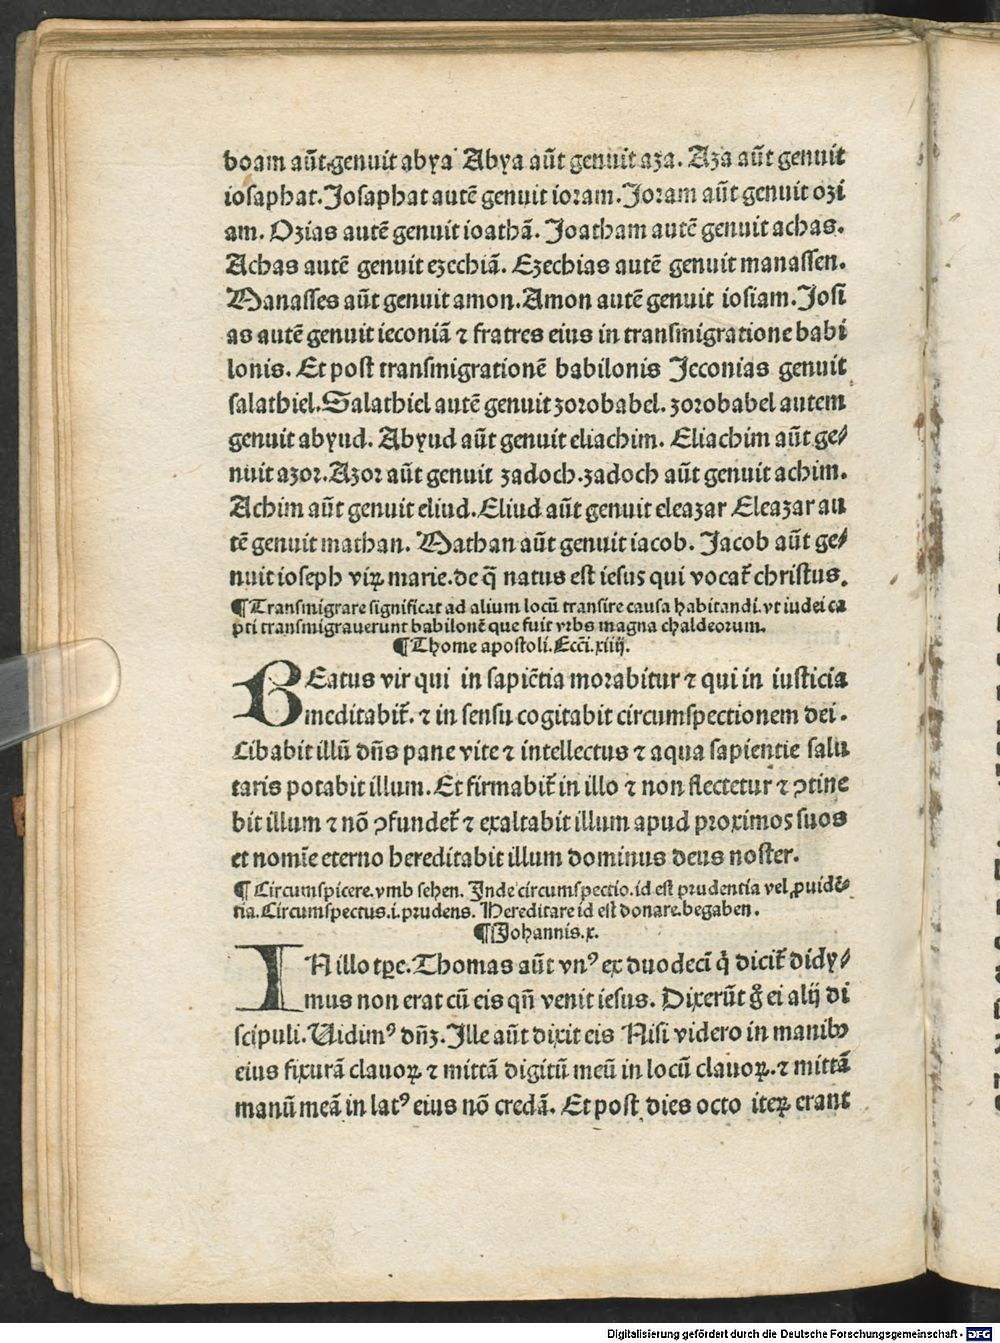 boam aūt.genuit abya Abya aūt genuit aza. Aza aūt genuit
iosaphat.Josaphat autē genuit ioram.Joram aūt genuit ozi
am. Ozias autē genuit ioathā. Joatham autē genuit achas.
Achas autē genuit ezechiā. Ezechias autē genuit manassen.
Manasses aūt genuit amon.Amon autē genuit iosiam.Josi
as autē genuit ieconiā ⁊ fratres eius in transmigratione babi
lonis. Et post transmigrationē babilonis Jeconias genuit
salathiel.Salathiel autē genuit zorobabel. zorobabel autem
genuit abyud. Abyud aūt genuit eliachim. Eliachim aūt ge⸗
nuit azor.Azor aūt genuit zadoch.zadoch aūt genuit achim.
Achim aūt genuit eliud.Eliud aūt genuit eleazar Eleazar au
tē genuit mathan. Mathan aūt genuit iacob. Jacob aūt ge⸗
nuit ioseph viꝝ marie.de q̄ natus est iesus qui vocat᷑ christus.
¶Transmigrare significat ad alium locū transire causa habitandi.vt iudei ca
pti transmigrauerunt babilonē que fuit vrbs magna chaldeorum.
¶Thome apostoli.Ecci̅.xiiij.
BEatus vir qui in sapiē̅tia morabitur ⁊ qui in iusticia
meditabit᷑. ⁊ in sensu cogitabit circumspectionem dei.
Cibabit illū dn̄s pane vite ⁊ intellectus ⁊ aqua sapientie salu
taris potabit illum.Et firmabit᷑ in illo ⁊ non flectetur ⁊ ꝯtine
bit illum ⁊ nō ꝯfundet᷑ ⁊ exaltabit illum apud proximos suos
et nomīe eterno hereditabit illum dominus deus noster.
¶ Circumspicere.vmb sehen. Inde circumspectio.id est prudentia vel ꝓuidē⸗
tia.Circumspectus.i.prudens. Hereditare id est donare.begaben.
¶Johannis.x.
IN illo tꝑe.Thomas aūt vnꝰ ex duodeci̅ q̇ dicit᷑ didy⸗
mus non erat cū eis qn̄ venit iesus. Dixerūt g̊ ei alij di
scipuli.Uidimꝰ dn̄ꝫ.Ille aūt dixit eis Nisi videro in manibꝰ
eius fixurā clauoꝝ ⁊ mittā digitū meū in locū clauoꝝ.⁊ mittā
manū meā in latꝰ eius nō credā. Et post dies octo iteꝝ erant
Digitalisierung gefördert durch die Deutsche Forschungsgemeinschaft - DFG